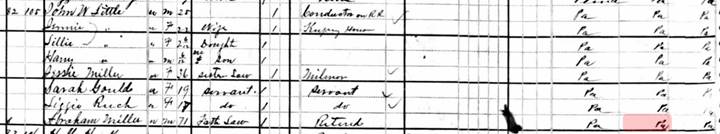 82 105 John W Little w m 28 1 Conductor on RR Pa Pa Pa
Jennie " w F 23 Wife 1 Keeping House Pa Pa Pa
Tillie " w F Dought 1 Pa Pa Pa
Harry " w m son 1 Pa Pa Pa
Miller w F 26 sister Law 1 Milnor Pa Pa Pa
Sarah Gould w F 19 servant 1 Servant Pa Pa
Lizzie Ruch w F 17 do 1 do Pa Pa
Abraham Miller w m 71 Fath Law Retired Pa Pa Pa